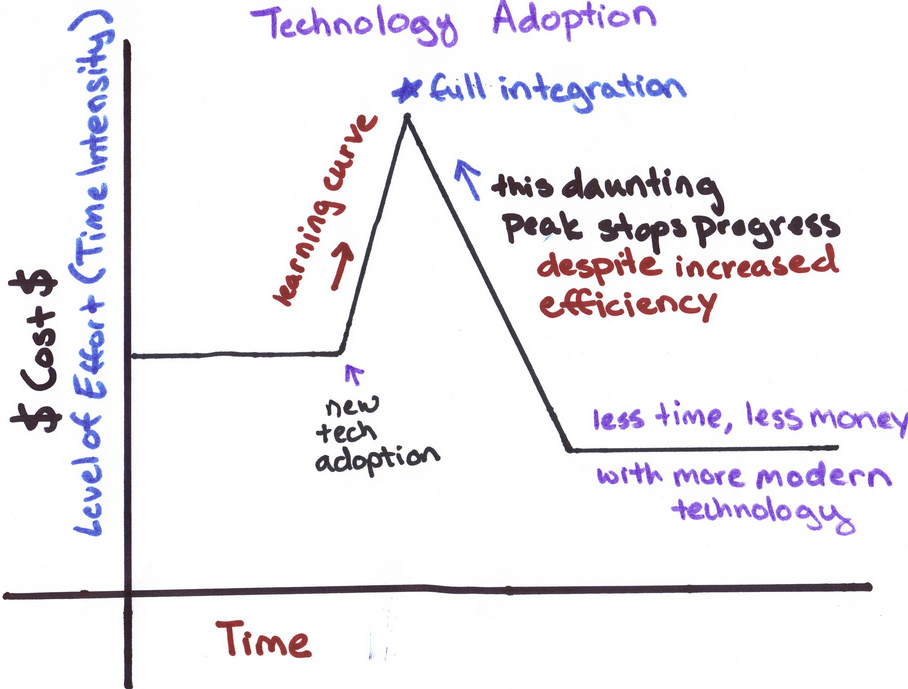 Technology Adoption
$ Cost $
Level of Effort (Time Intensity)
★ full integration
learning curve
this daunting
peak stops progress
despite increased
efficiency
new
tech
adoption
less time, less money
with more modern
technology
Time